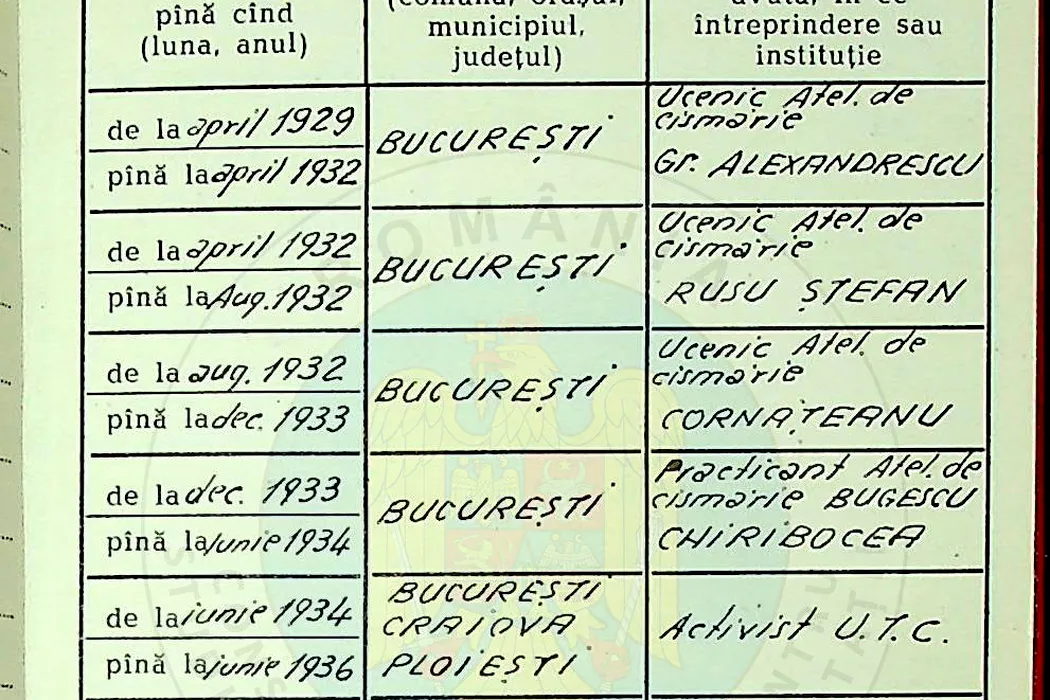 pînă cînd
(luna, anul)
municipiul,
județul)
întreprindere sau
instituție
de la april 1929
pînă la april 1932
BUCUREȘTI
Ucenic Atel. de
cismărie
Gr. ALEXANDRESCU
de la april 1932
pînă la Aug. 1932
BUCUREȘTI
Ucenic Atel. de
cismărie
RUSU ȘTEFAN
de la aug. 1932
pînă la dec. 1933
BUCUREȘTI
Ucenic Atel. de
cismărie
CORNĂȚEANU
de la dec. 1933
pînă la Iunie 1934
BUCUREȘTI
Practicant Atel. de
cismărie BUGESCU
CHIRIBOCEA
de la iunie 1934
pînă la iunie 1936
BUCUREȘTI
CRAIOVA
PLOIEȘTI
Activist U.T.C.
ROMÂNIA